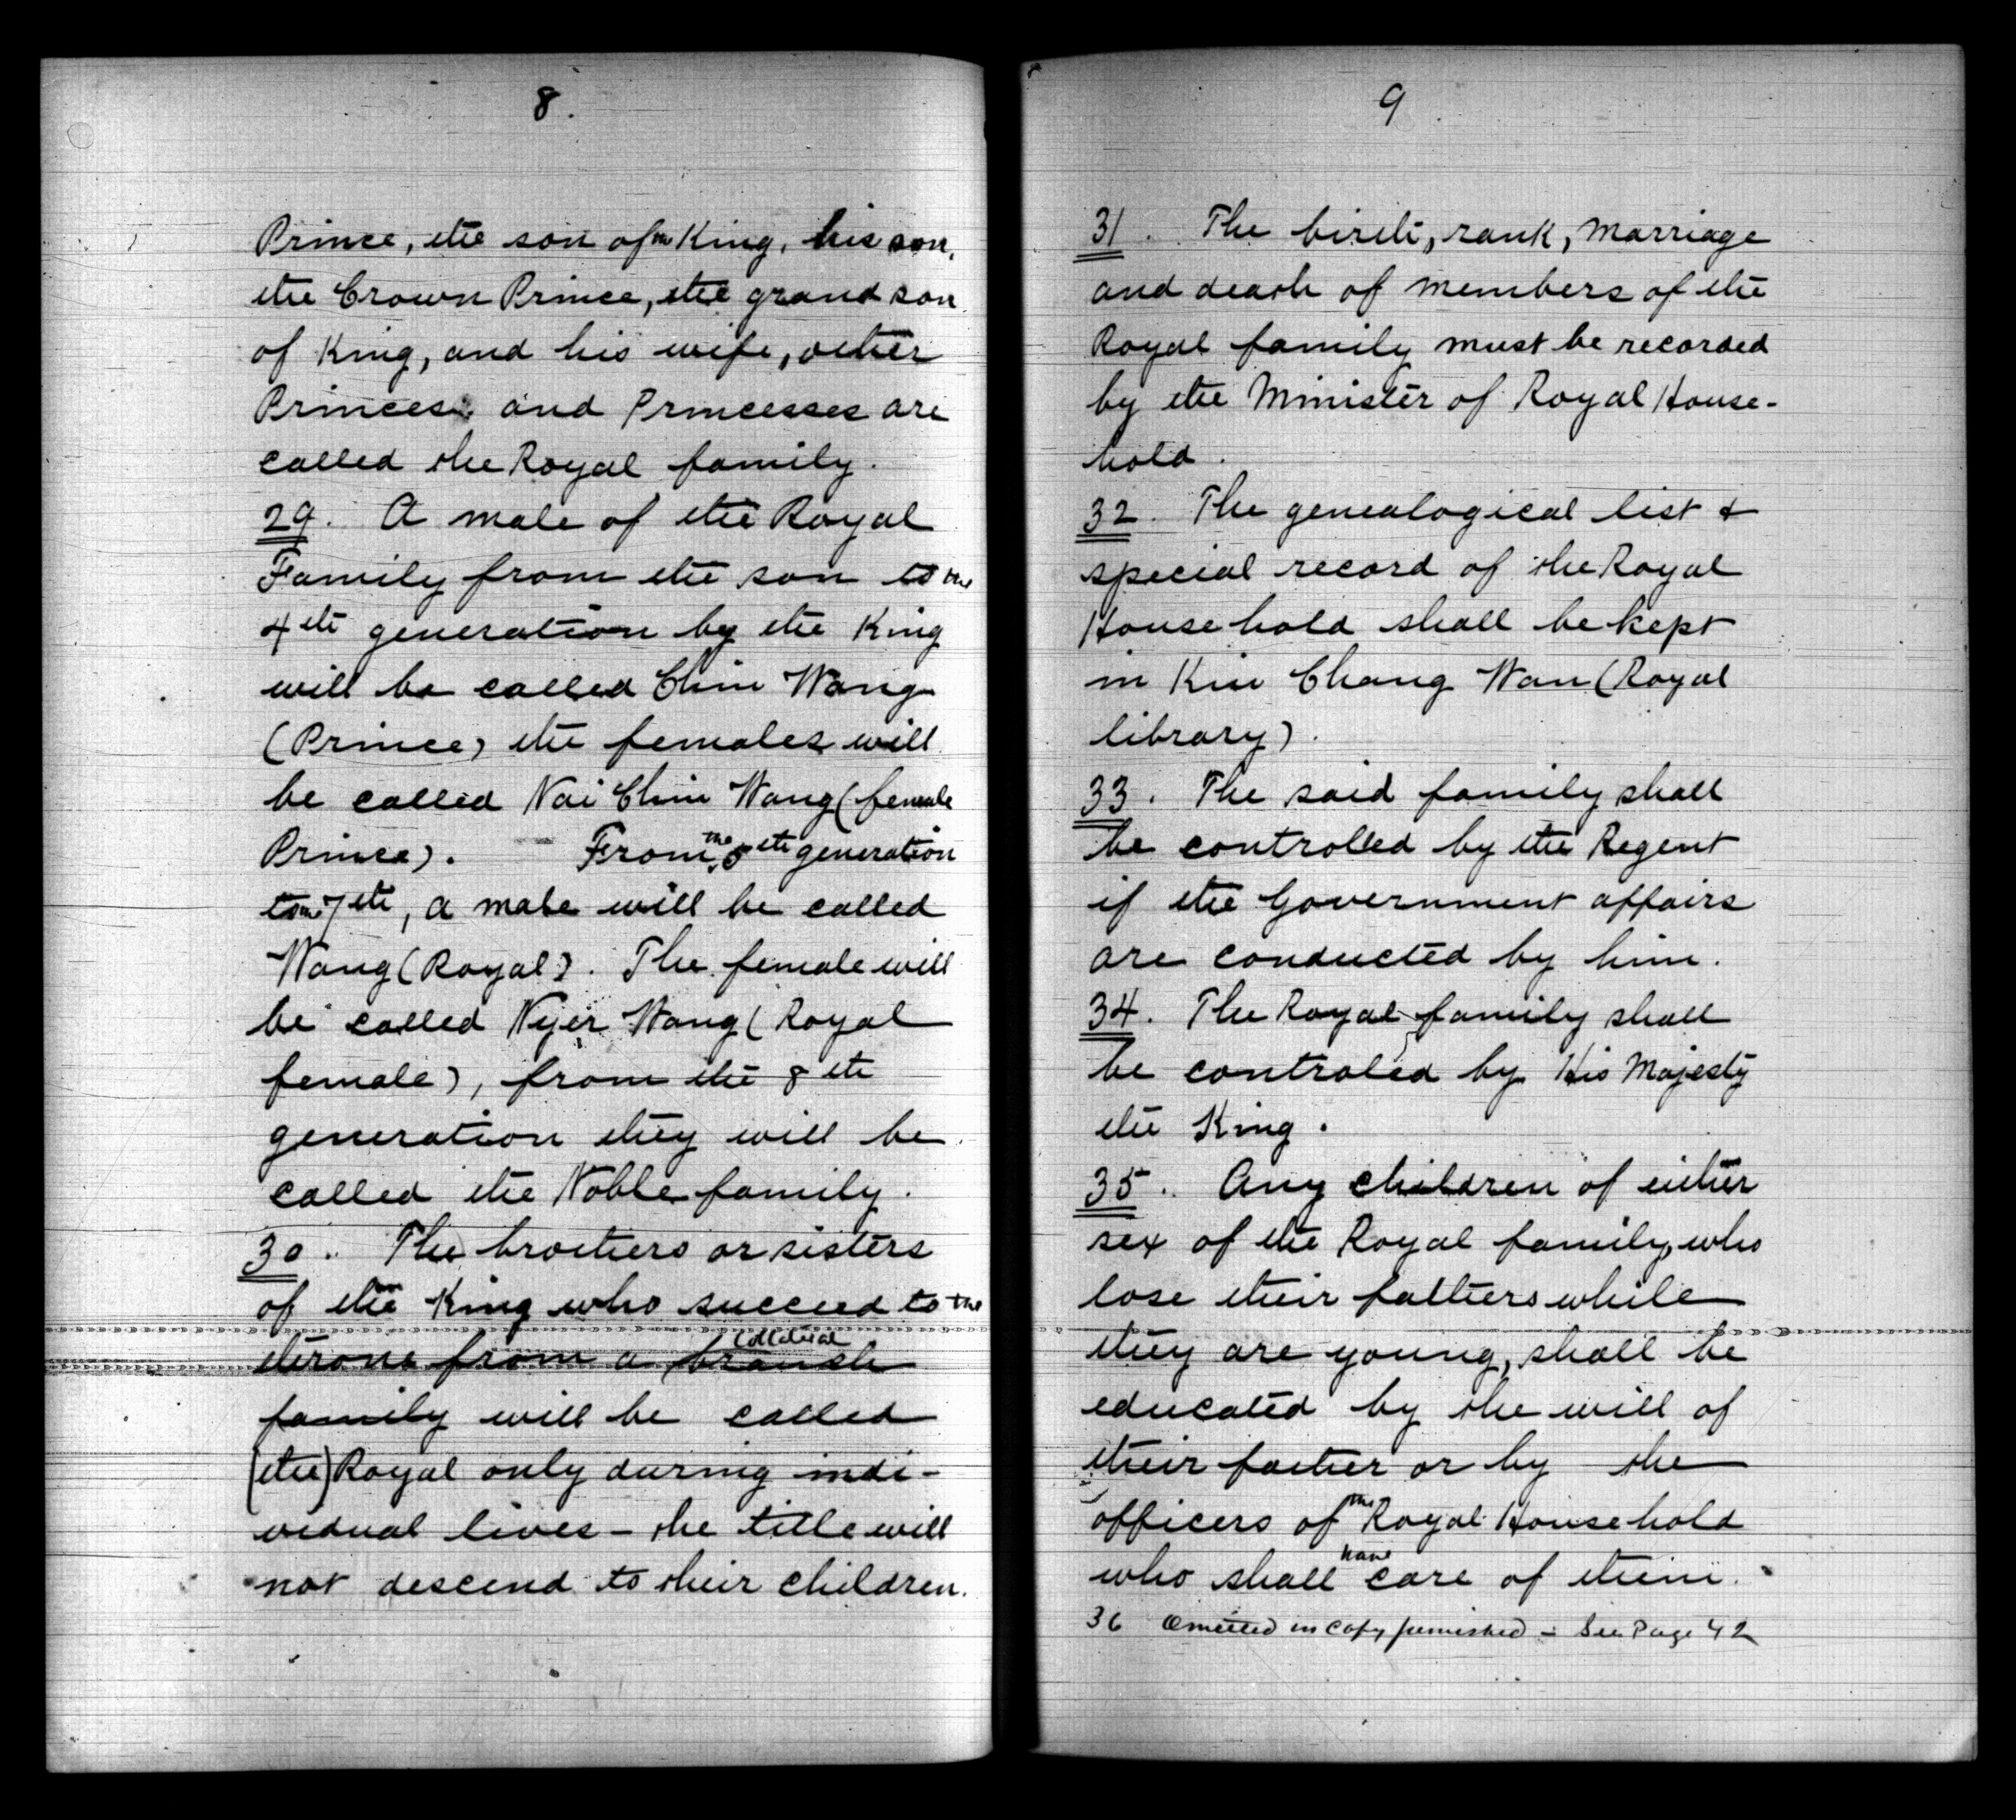 8.
Prince, the son of the King, his son,
the Crown Prince, the grand son
of King, and his wife, other
Princes and Princesses are
called the Royal family.
29. A male of the Royal
Family from the son to the
4th generation by the King
will be called Chin Wang
(Prince) the females will
be called Nai Chin Wang (female
Prince). From the 5th generation
to the 7th, a male will be called
Wang (Royal). The female will
be called Nyer Wang (Royal
female), from the 8th
generation they will be
called the Noble family.
30. The brothers or sisters
of the King who succeed to the
throne from a collateral branch
family will be called
(the) Royal only during indi-
vidual lives - the title will
not descend to their children.
9
31. The birth, rank, marriage
and death of members of the
Royal family must be recorded
by the Minister of Royal House-
hold.
32. The genealogical list &
special record of the Royal
Household shall be kept
in Kiu Chang Wan (Royal
library).
33. The said family shall
be controlled by the Regent
if the Government affairs
are conducted by him.
34. The Royal family shall
be controled by His Majesty
the King.
35. Any children of either
sex of the Royal family, who
lose their fathers while
they are young, shall be
educated by the will of
their father or by the
officers of the Royal Household
who shall have care of them.
36 Omitted in copy furnished - See Page 42